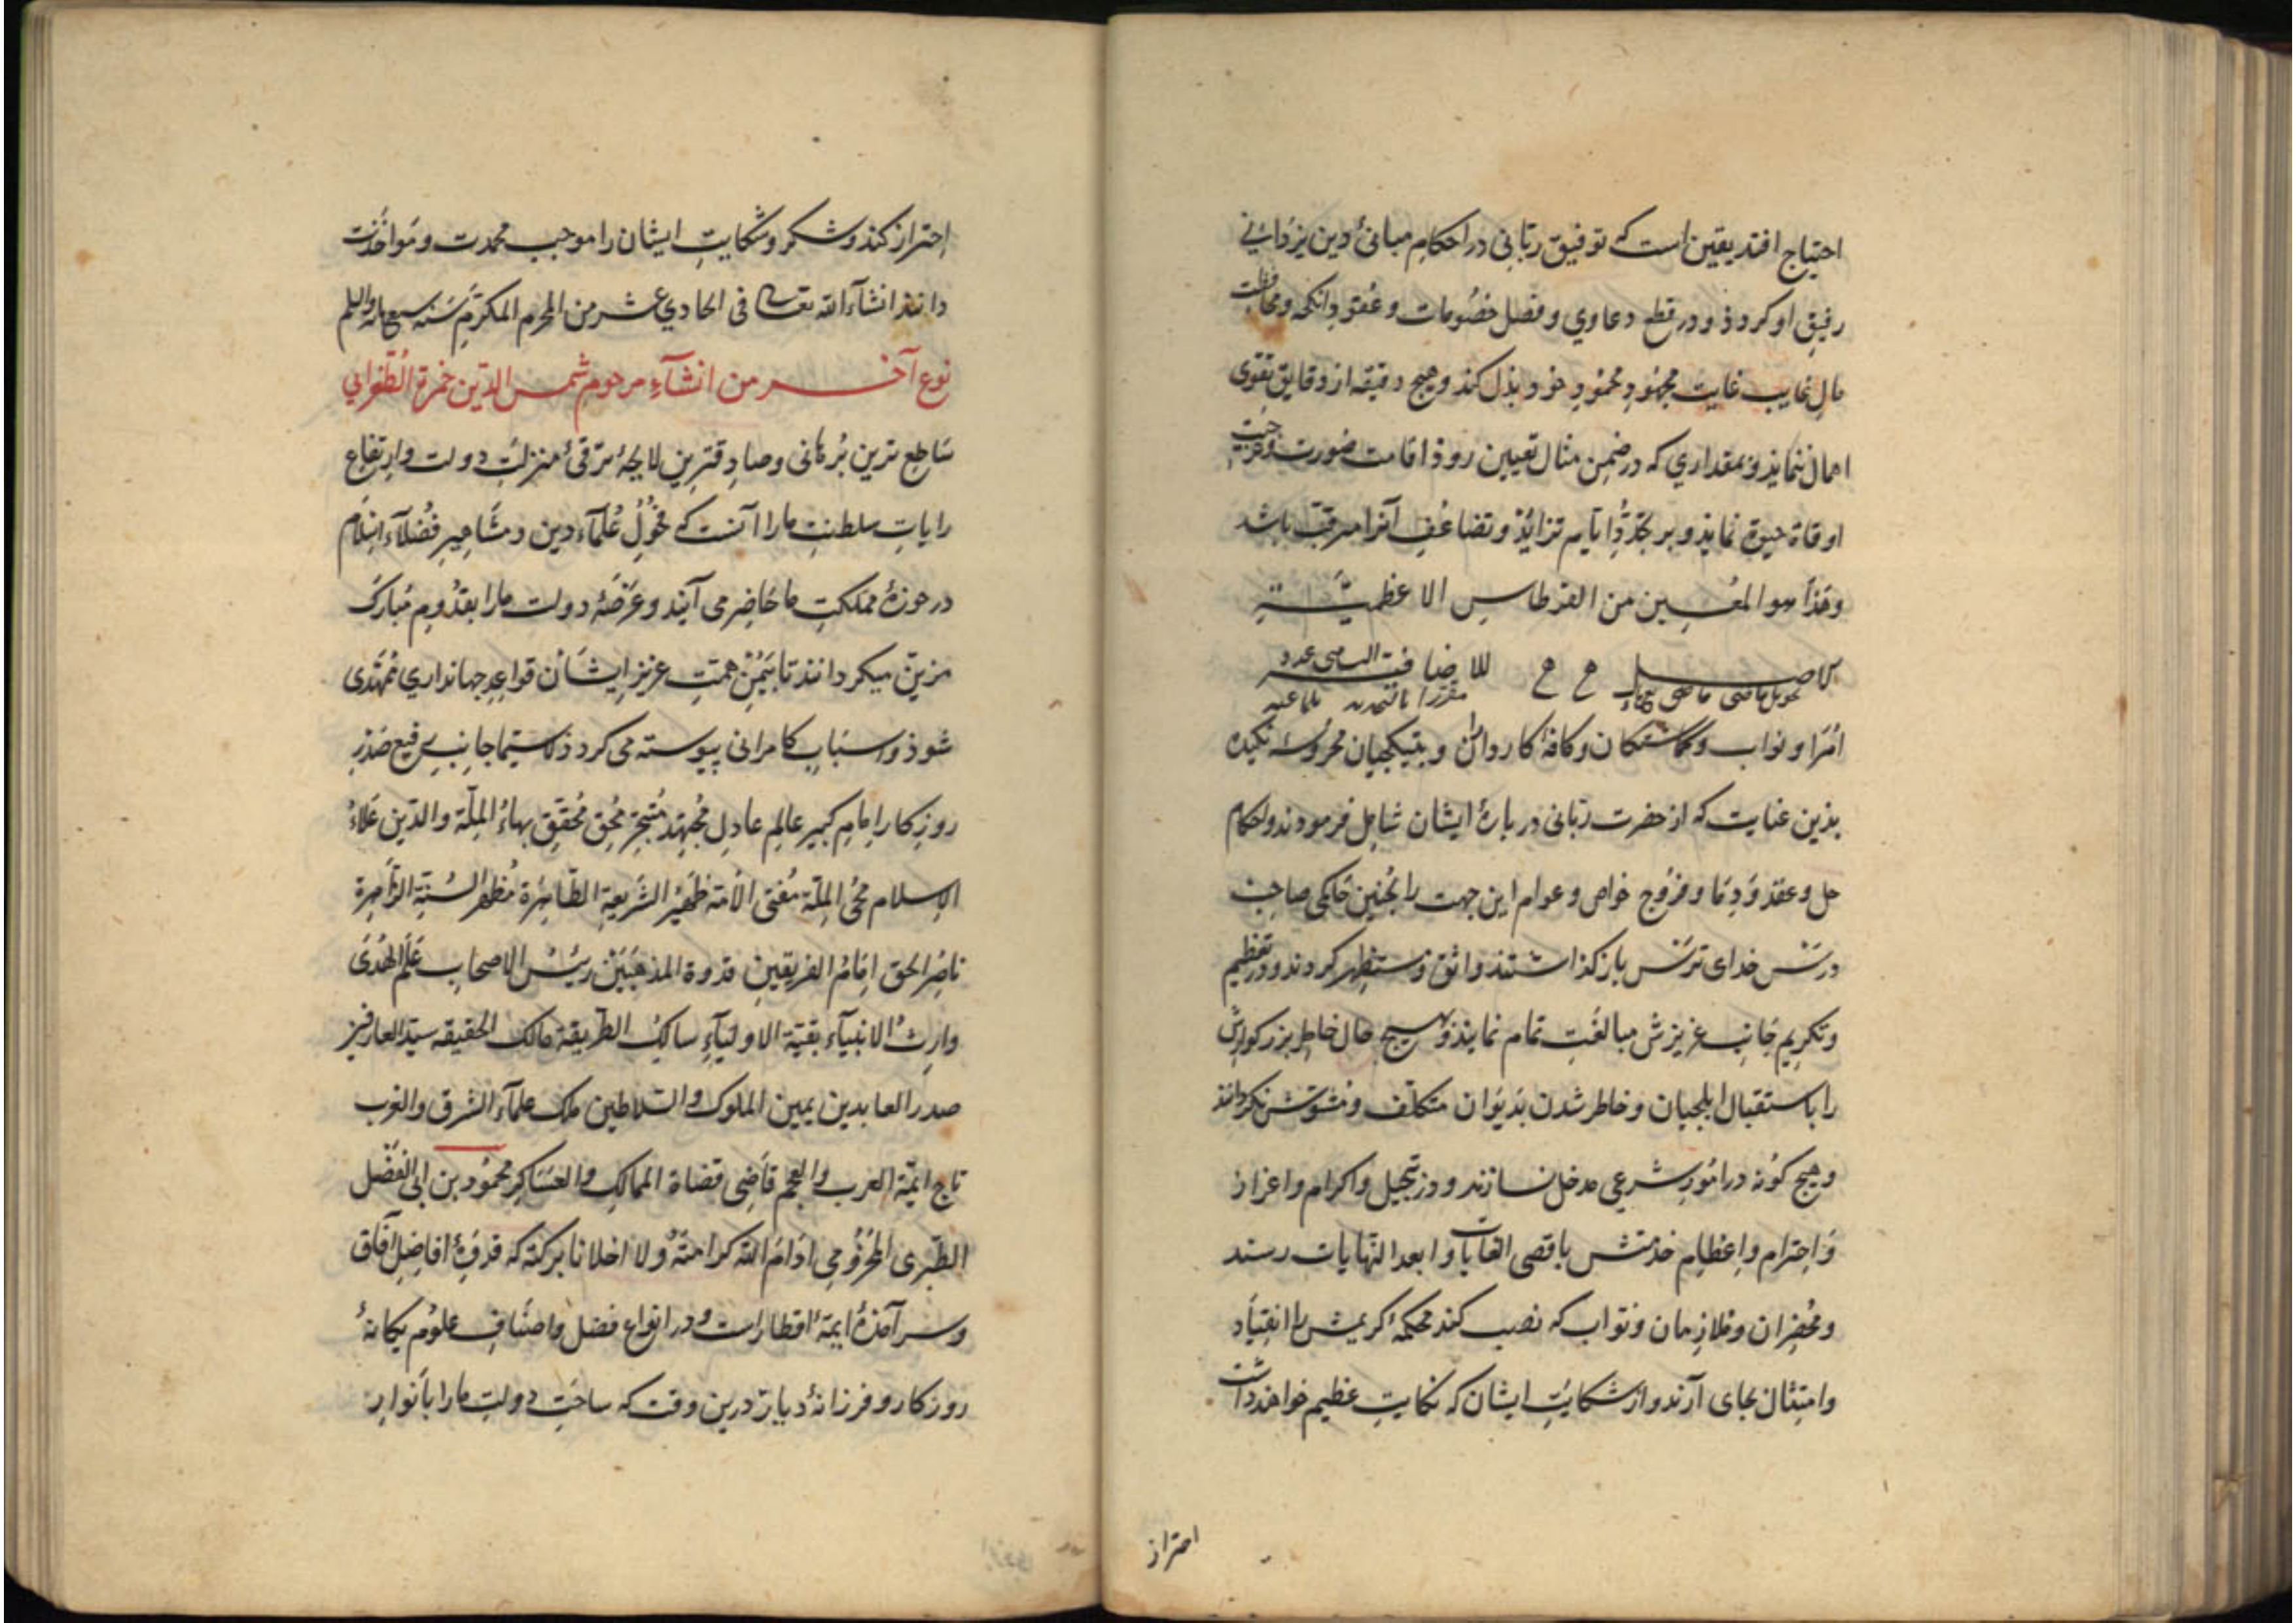 احتیاج افتد یقین است که توفیق ربّانی در احکام مبانئ دین یزدانی
رفیق او کردذ و در قطع دعاوی و فصل خصُومات و عُقودِ انکحه و محافظت
مالِ غایب غایت مجهُودِ محمُودِ خود بذل کند و هیچ دقیقه از دقایق تقوی
اهمال ننماید و بمقداری که در ضمن مثال تعیین روذ اقامت ضورت
اوقاة حیوة نماید و بر تجدّدِ ایّام تزایُد و تضاعُفِ آنرا مرقّب باشد
وهَذا هو المُعین من القرطاس الاعظمیّة
للاضافة
اُمَرا و نواب و کماشتکان و کافۀ کارداران و بتیکجیان محروسۀ نکیده
بذین عنایت که از حضرت ربّانی در بارۀ ایشان شامل فرمودند و احکام
حل و عقد و دِمَا و فرُوج خواص و عوام این جهت را بچُنین حاکمی صاحب
درسَ خدای ترس باز کذاشتند واثق و مستظهر کردند و در تعظیم
و تکریم جَانبِ عزیزش مبالغَتِ تمام نمایند و بهیچ حال خاطر بزرکوارش
را باستقبال ایلجیان و حاضر شدن بدیوَان متکلّف و مشوّش نکردانند
و هیچ کونه در امُورِ شرعی مدخل نسازند و در تبجیل و اکرام و اعزاز
وَ احترام و اِعْظامِ خدمتش باقصی الغایات و ابعد النّهایات رسند
و مُحضِران و مُلازمان و نوّاب که نصب کند محکمۀ کریمش را انقِیَاد
و امتِثال بجای آرند و از شکایَتِ ایشان که نکایتِ عظیم خواهد داشت
احتراز
اِحتراز کند و شکر و شکایتِ ایشان را موجب محمدت و مُواخَذت
دانند انشآء الله تعالی فی الحادی عشر من المحرم المکرّم سَنه سبع مایه والسلم
نوع آخر من انشآءِ مرحوم شمس الدّین حمزة الطّغرایی
ساطع ترین بُرهانی و صادِقترین لایحۀ ترقئ منزلتِ دولت و اِرتِفاعِ
رایاتِ سلطنتِ ما را آنست که فحُولِ عُلمآء دین و مشَاهیرِ فُضلآءِ اسلام
در حوزۀ مملکتِ ما حَاضِر می آیند و عَرْصَۀ دولت ما را بقدُومِ مُبارک
مزیّن میکردانند تا بیَمُنِ همّتِ عزیز اِیشَان قواعدِ جهانداری مُمهّدی
شوذ و اسبَابِ کامرانی پیوسته می کردد لاسیّما جانبِ رفیع صَدْرِ
روزکار اِمامِ کبیر عالِم عادِل مُجْتهِد مُتبحّر مُحِق مُحقّق بهاءُ المِلّة والدّین عَلاءُ
الاِسلام مُحیی المِلّة مُفتی الاُمّه ظَهیْر الشّریعة الطّاهِرَة مُظهرُ السُنّة الزّاهِرة
ناصِرُ الحق اِمَامُ الفریقَین قدوة المذهبَیْن رئیسُ الاصحاب عَلَمُ الهُدَی
وارثُ الانبیآء بقیّة الاولیَآء سالکُ الطّریقة مالک الحقیقه سیّد العارفین
صدر العابدین یمین الملوک والسّلاطین ملک علمآءِ الشّرق والغرب
تاج ایمّة العرب والعجم قاضی قضاة الممالکِ والعَسَاکِر محمُود بن ابی الفَضْل
الطّبری المخزُومی ادَامَ الله کرامتهُ و لا اخلانا برکته که قدوَۀ افاضِلِ آفاق
و سرآمذۀ ایمۀ اقطارست و در انواعِ فضل و اصنَافِ علوُم یکانۀ
روزکار و فرزانۀ دیار درین وقت که ساحَتِ دولتِ ما را باَنوارِ